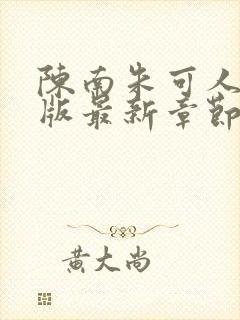 陳南朱可人
版最新章節
黃大尚